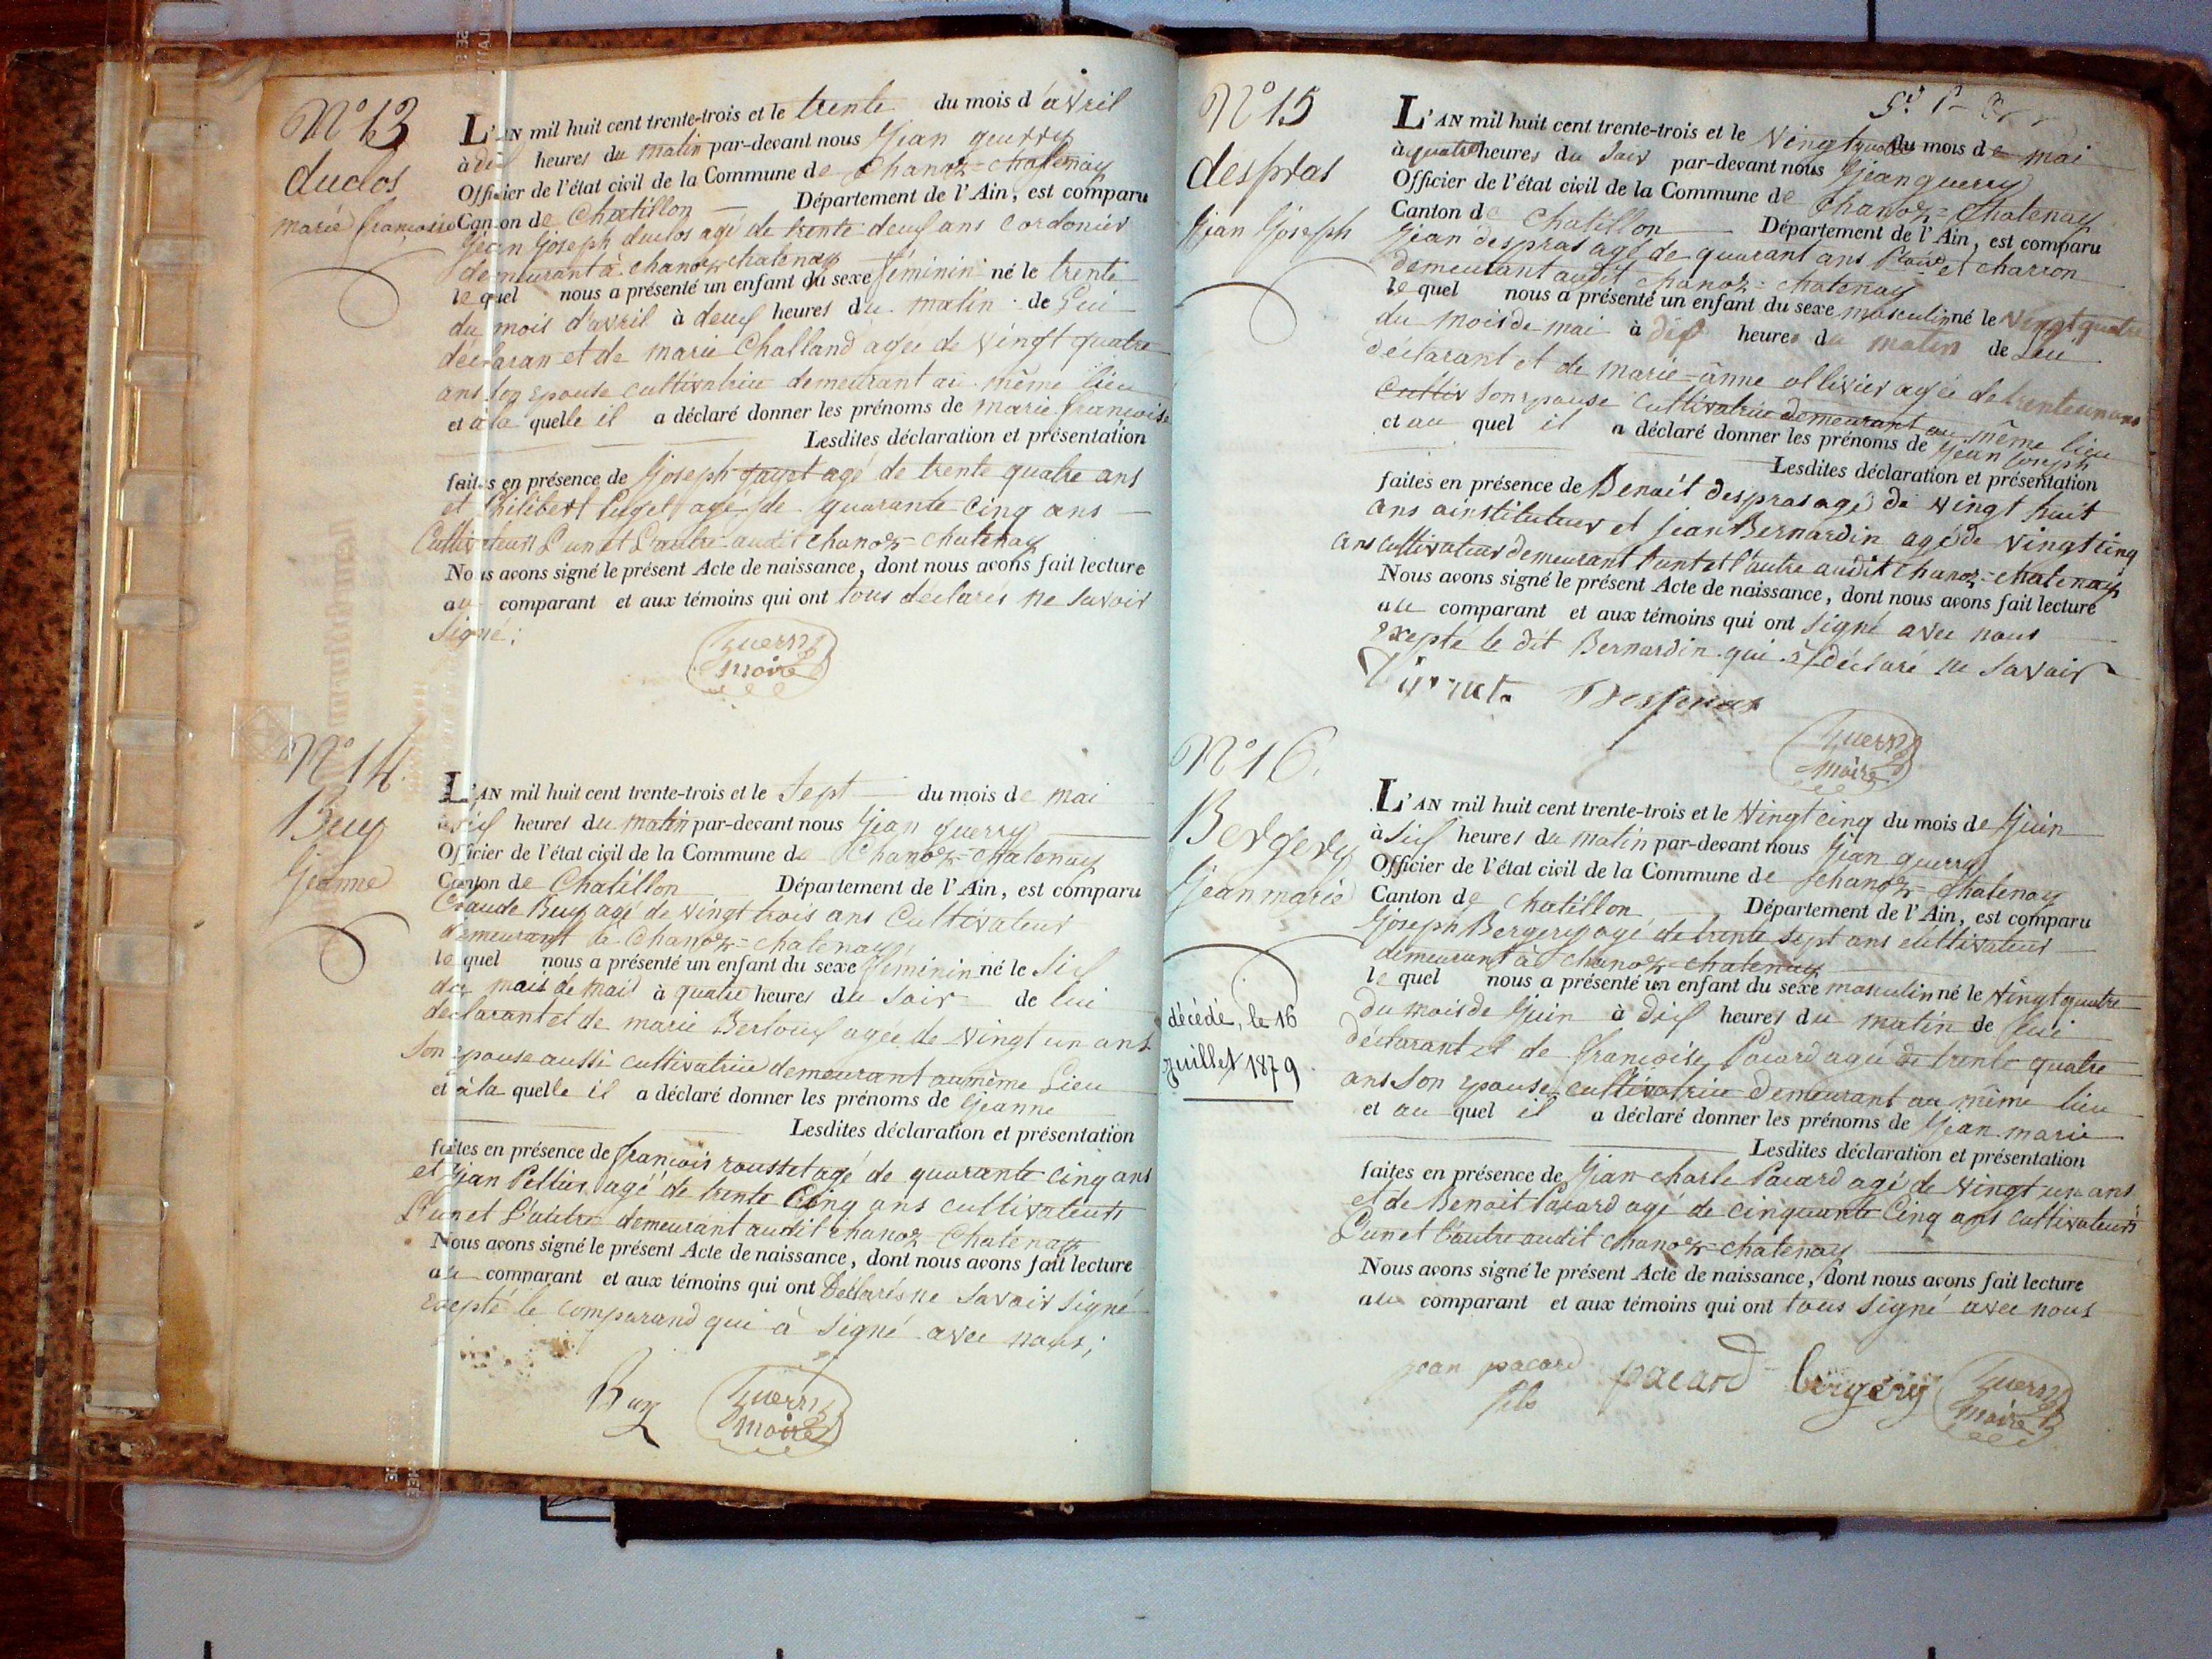 N° 13
duclos
marie françoise
L'AN mil huit cent trente-trois et le trente du mois d'avril
à dix heures du matin par-devant nous Jean guerry
Officier de l'état civil de la Commune de Chanoz=chatenay
Canton de Chatillon — Département de l'Ain, est comparu
Jean Joseph duclos agé de trente deux ans cordonier
demeurant à chanoz chatenay
le quel nous a présenté un enfant du sexe féminin né le trente
du mois d'avril à deux heures du matin de Lui
déclaran et de marie Challand agée de vingt quatre
ans son epouse cultivatrice demeurant au même lieu
et à la quelle il a déclaré donner les prénoms de marie françoise
Lesdites déclaration et présentation
faites en présence de Joseph gayet agé de trente quatre ans
et Philibert Puget agé de quarante cinq ans —
Cultivateurs L'un et L'autre audit chanoz=chatenay
Nous avons signé le présent Acte de naissance, dont nous avons fait lecture
au comparant et aux témoins qui ont tous déclarés ne savoir
signé;
Guerry
maire
N° 14.
Buy
Jeanne
L'AN mil huit cent trente-trois et le Sept — du mois de mai
à six heures du matin par-devant nous Jean guerry
Officier de l'état civil de la Commune de Chanoz=chatenay
Canton de Chatillon Département de l'Ain, est comparu
Claude Buy agé de vingt trois ans Cultivateur
demeurant à Chanoz=chatenay
le quel nous a présenté un enfant du sexe féminin né le Six
du mois de mai à quatre heures du soir de lui
declarant et de marie Bertoux agée de vingt un ans
Son epouse aussi cultivatrice demeurant au même Lieu
et à la quelle il a déclaré donner les prénoms de Jeanne
Lesdites déclaration et présentation
faites en présence de françois roustet agé de quarante cinq ans
et Jean Pellier agé de trente Cinq ans cultivateurs
L'un et L'autre demeurant audit chanoz Chatenay
Nous avons signé le présent Acte de naissance, dont nous avons fait lecture
au comparant et aux témoins qui ont Déclarés ne savoir signé
exepté le comparand qui à signé avec nous;
Buy
Guerry
maire
N° 15
despras
Jean Joseph
L'AN mil huit cent trente-trois et le Vingt quatre du mois de mai
à quatre heures du Soir par-devant nous Jean guerry
Officier de l'état civil de la Commune de Chanoz=Chatenay
Canton de Chatillon — Département de l'Ain, est comparu
Jean despras agé de quarant ans et charron
demeurant audit chanoz=chatenay
le quel nous a présenté un enfant du sexe masculin né le vingt quatre
du mois de mai à dix heures du matin de Lui
déclarant et de marie=anne ollivier agée de trente un ans
Cultiv son epouse cultivatrice demeurant au même lieu
et au quel il a déclaré donner les prénoms de Jean Joseph
Lesdites déclaration et présentation
faites en présence de Benoit despras agé de vingt huit
ans ainstituteur et jean Bernardin agé de vingt cinq
ans cultivateur demeurant l'un et l'autre audit Chanoz=chatenay
Nous avons signé le présent Acte de naissance, dont nous avons fait lecture
au comparant et aux témoins qui ont signé avec nous
exepté le dit Bernardin qui à déclaré ne savoir
Despras
Guerry
maire
N° 16.
Bergery
Jean marie
décédé, le 16
juillet 1879.
L'AN mil huit cent trente-trois et le Vingt cinq du mois de Juin
à Six heures du matin par-devant nous Jean guerry
Officier de l'état civil de la Commune de Chanoz=Chatenay
Canton de Chatillon Département de l'Ain, est comparu
Joseph Bergery agé de trente sept ans cultivateur
demeurant à chanoz=chatenay
le quel nous a présenté un enfant du sexe masculin né le vingt quatre
du mois de Juin à dix heures du matin de lui
déclarant et de françoise Pacard agée de trente quatre
ans Son epouse cultivatrice demeurant au même lieu
et au quel il a déclaré donner les prénoms de Jean marie
Lesdites déclaration et présentation
faites en présence de Jean charle Pacard agé de vingt un ans
et de Benoit Pacard agé de cinquante Cinq ans cultivateurs
L'un et l'autre audit chanoz=chatenay
Nous avons signé le présent Acte de naissance, dont nous avons fait lecture
au comparant et aux témoins qui ont tous signé avec nous
jean pacard
fils
pacard
bergery
Guerry
maire